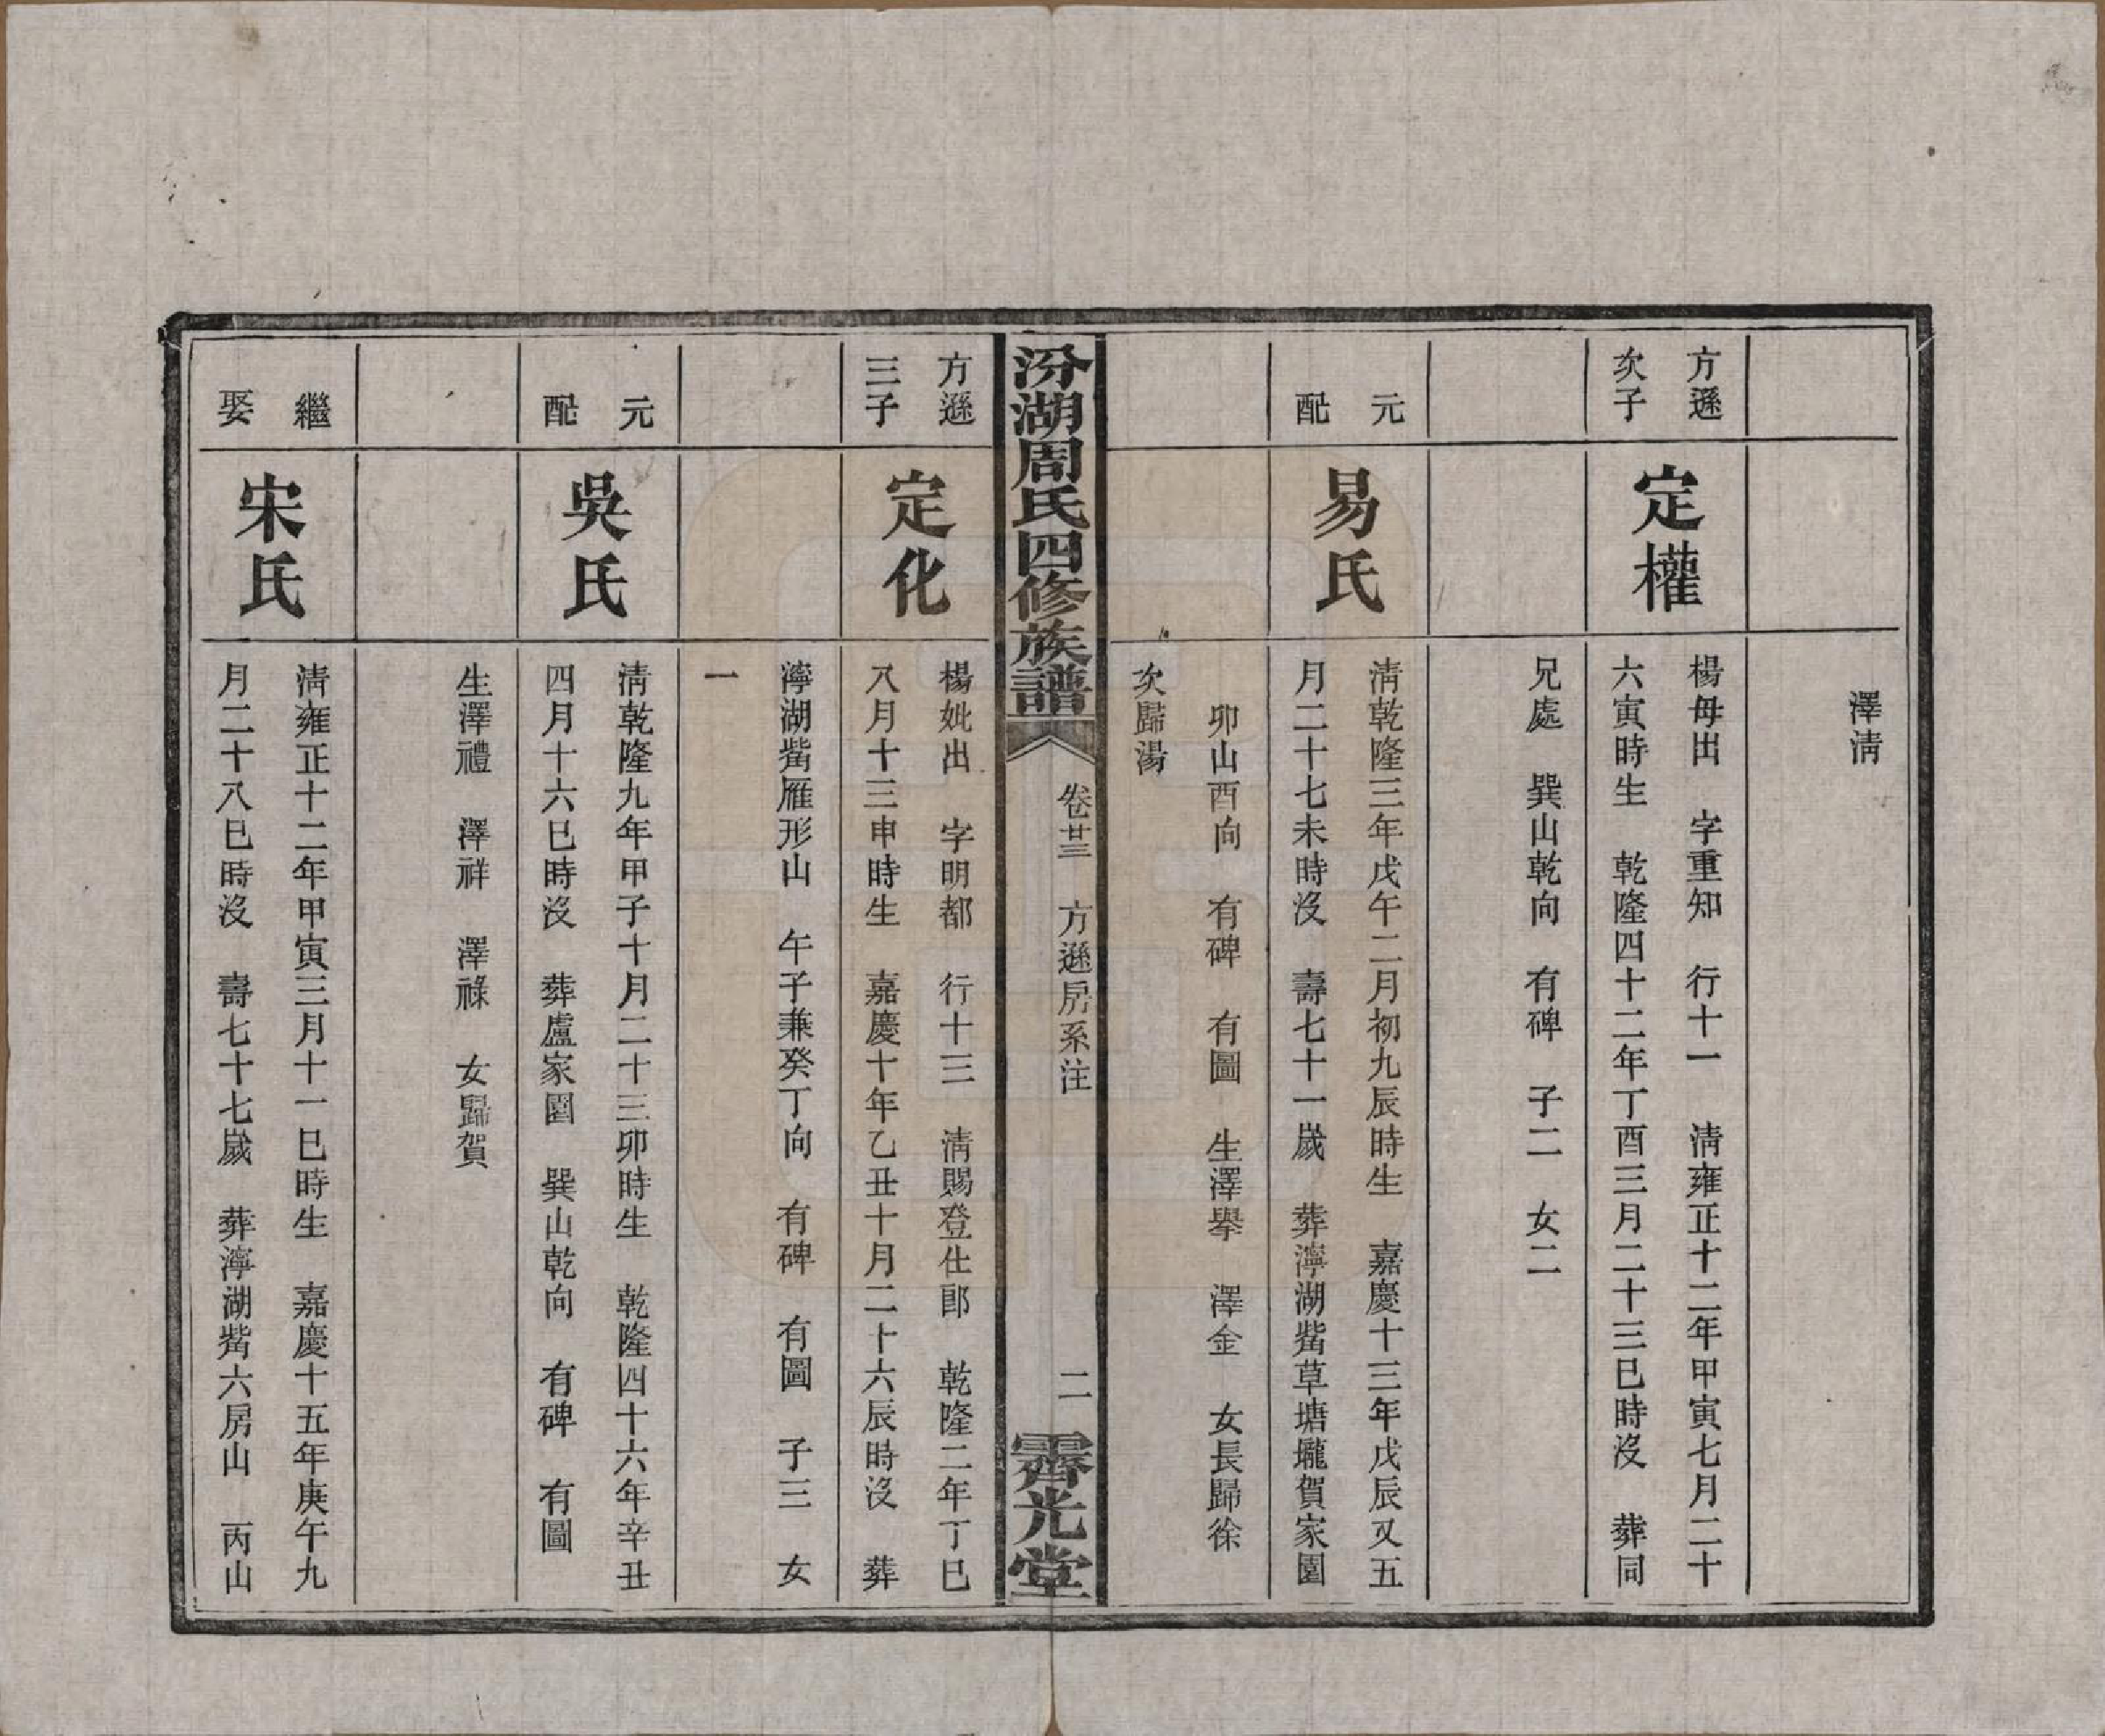 澤淸
方遜
次子
定權
楊母出　字重知　行十一　淸雍正十二年甲寅七月二十
六寅時生　乾隆四十二年丁酉三月二十三巳時沒　葬同
兄處　巽山乾向　有碑　子二　女二
元
配
易氏
淸乾隆三年戊午二月初九辰時生　嘉慶十三年戊辰又五
月二十七未時沒　壽七十一歲　葬濘湖觜草塘壠賀家園
卯山酉向　有碑　有圖　生澤舉　澤金　女長歸徐
次歸湯
汾湖周氏四修族譜
卷廿三　方遜房系注
二
霽光堂
方遜
三子
定化
楊妣出　字明都　行十三　淸賜登仕郎　乾隆二年丁巳
八月十三申時生　嘉慶十年乙丑十月二十六辰時沒　葬
濘湖觜雁形山　午子兼癸丁向　有碑　有圖　子三　女
一
元
配
吳氏
淸乾隆九年甲子十月二十三卯時生　乾隆四十六年辛丑
四月十六巳時沒　葬盧家園　巽山乾向　有碑　有圖
生澤禮　澤祥　澤祿　女歸賀
繼
娶
宋氏
淸雍正十二年甲寅三月十一巳時生　嘉慶十五年庚午九
月二十八巳時沒　壽七十七歲　葬濘湖觜六房山　丙山